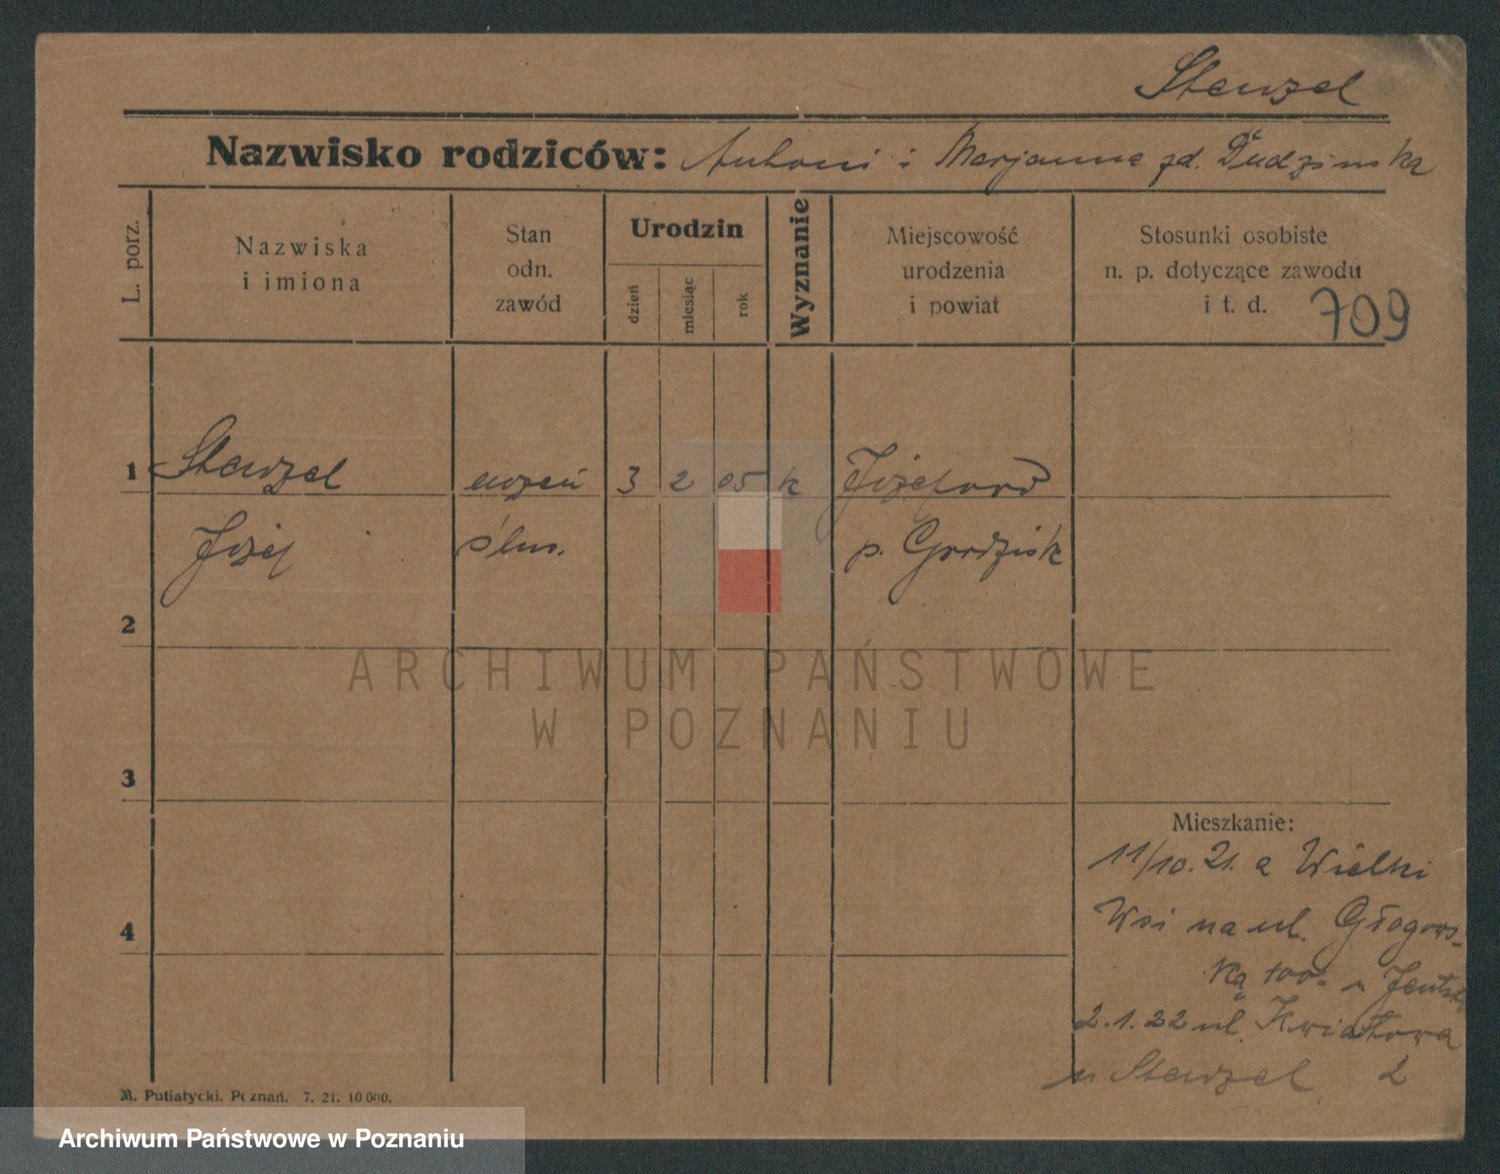 Stenzel
Nazwisko rodziców: Antoni i Marjanna zd. Dudzinska
L. porz.
Nazwiska
i imiona
Stan
odn.
zawód
Urodzin
dzień
miesiąc
rok
Wyznanie
Miejscowość
urodzenia
i powiat
Stosunki osobiste
n. p. dotyczące zawodu
i t. d.
709
1 Stenzel uczeń 3 2 05 k
Józef ślus. p. Grodzisk
2
ARCHIWUM PAŃSTWOWE
W POZNANIU
3
Mieszkanie:
11/10.21. z Wielki
4
Wsi na ul. Głogows-
ką
2.1.22 ul. Kwiatowa
u Stenzel 2
M. Putiatycki. Poznań. 7. 21. 10 000.
Archiwum Państwowe w Poznaniu